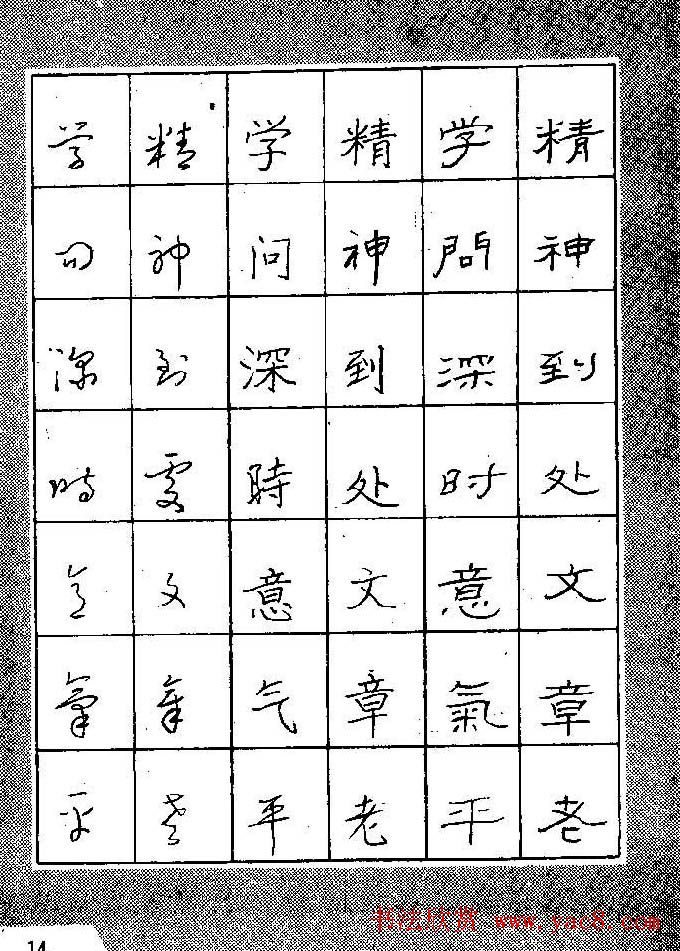 精神到处文章老
学問深时意氣平
精神到处文章老
学问深時意气平
精神到處文章老
学问深時意氣平
14
书法欣赏 www.yac8.com